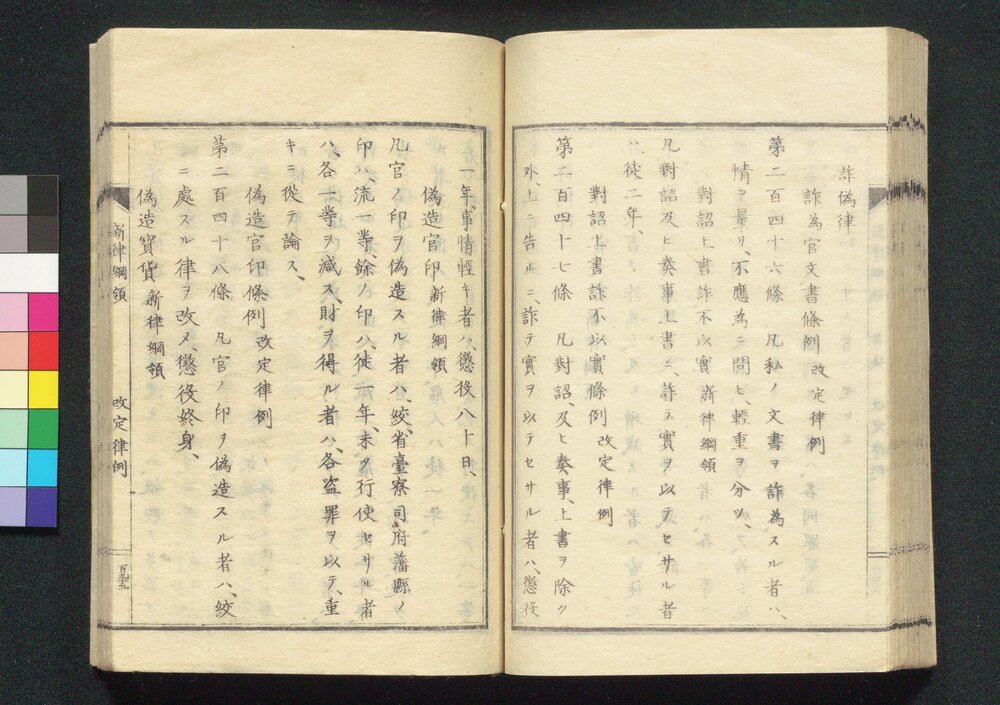 詐偽律
詐為官文書條例 改定律例
第二百四十六條 凡私ノ文書ヲ詐為スル者ハ、
情ヲ量リ、不應為ニ問ヒ、輕重ヲ分ツ、
對詔上書詐不以實 新律綱領
凡對詔及ヒ奏事上書ニ、詐テ實ヲ以テセサル者
ハ、徒二年、
對詔上書詐不以實條例 改定律例
第二百四十七條 凡對詔、及ヒ奏事、上書ヲ除ク
外、上ニ告ルニ、詐テ實ヲ以テセサル者ハ、懲役
一年、事情輕キ者ハ、懲役八十日、
偽造官印 新律綱領
凡官ノ印ヲ偽造スル者ハ、絞、省臺寮司府藩縣ノ
印ハ、流一等、餘ノ印ハ、徒一年、未タ行使セサル者
ハ、各一等ヲ減ス、財ヲ得ル者ハ、各盗罪ヲ以テ、重
キニ從テ論ス、
偽造官印條例 改定律例
第二百四十八條 凡官ノ印ヲ偽造スル者ハ、絞
ニ處スル律ヲ改メ、懲役終身、
偽造寶貨 新律綱領
新律綱領 改定律例